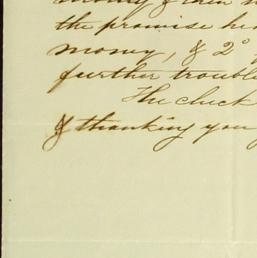 money & then
the promise he
money, & 2°
further trouble
The check
of thanking you